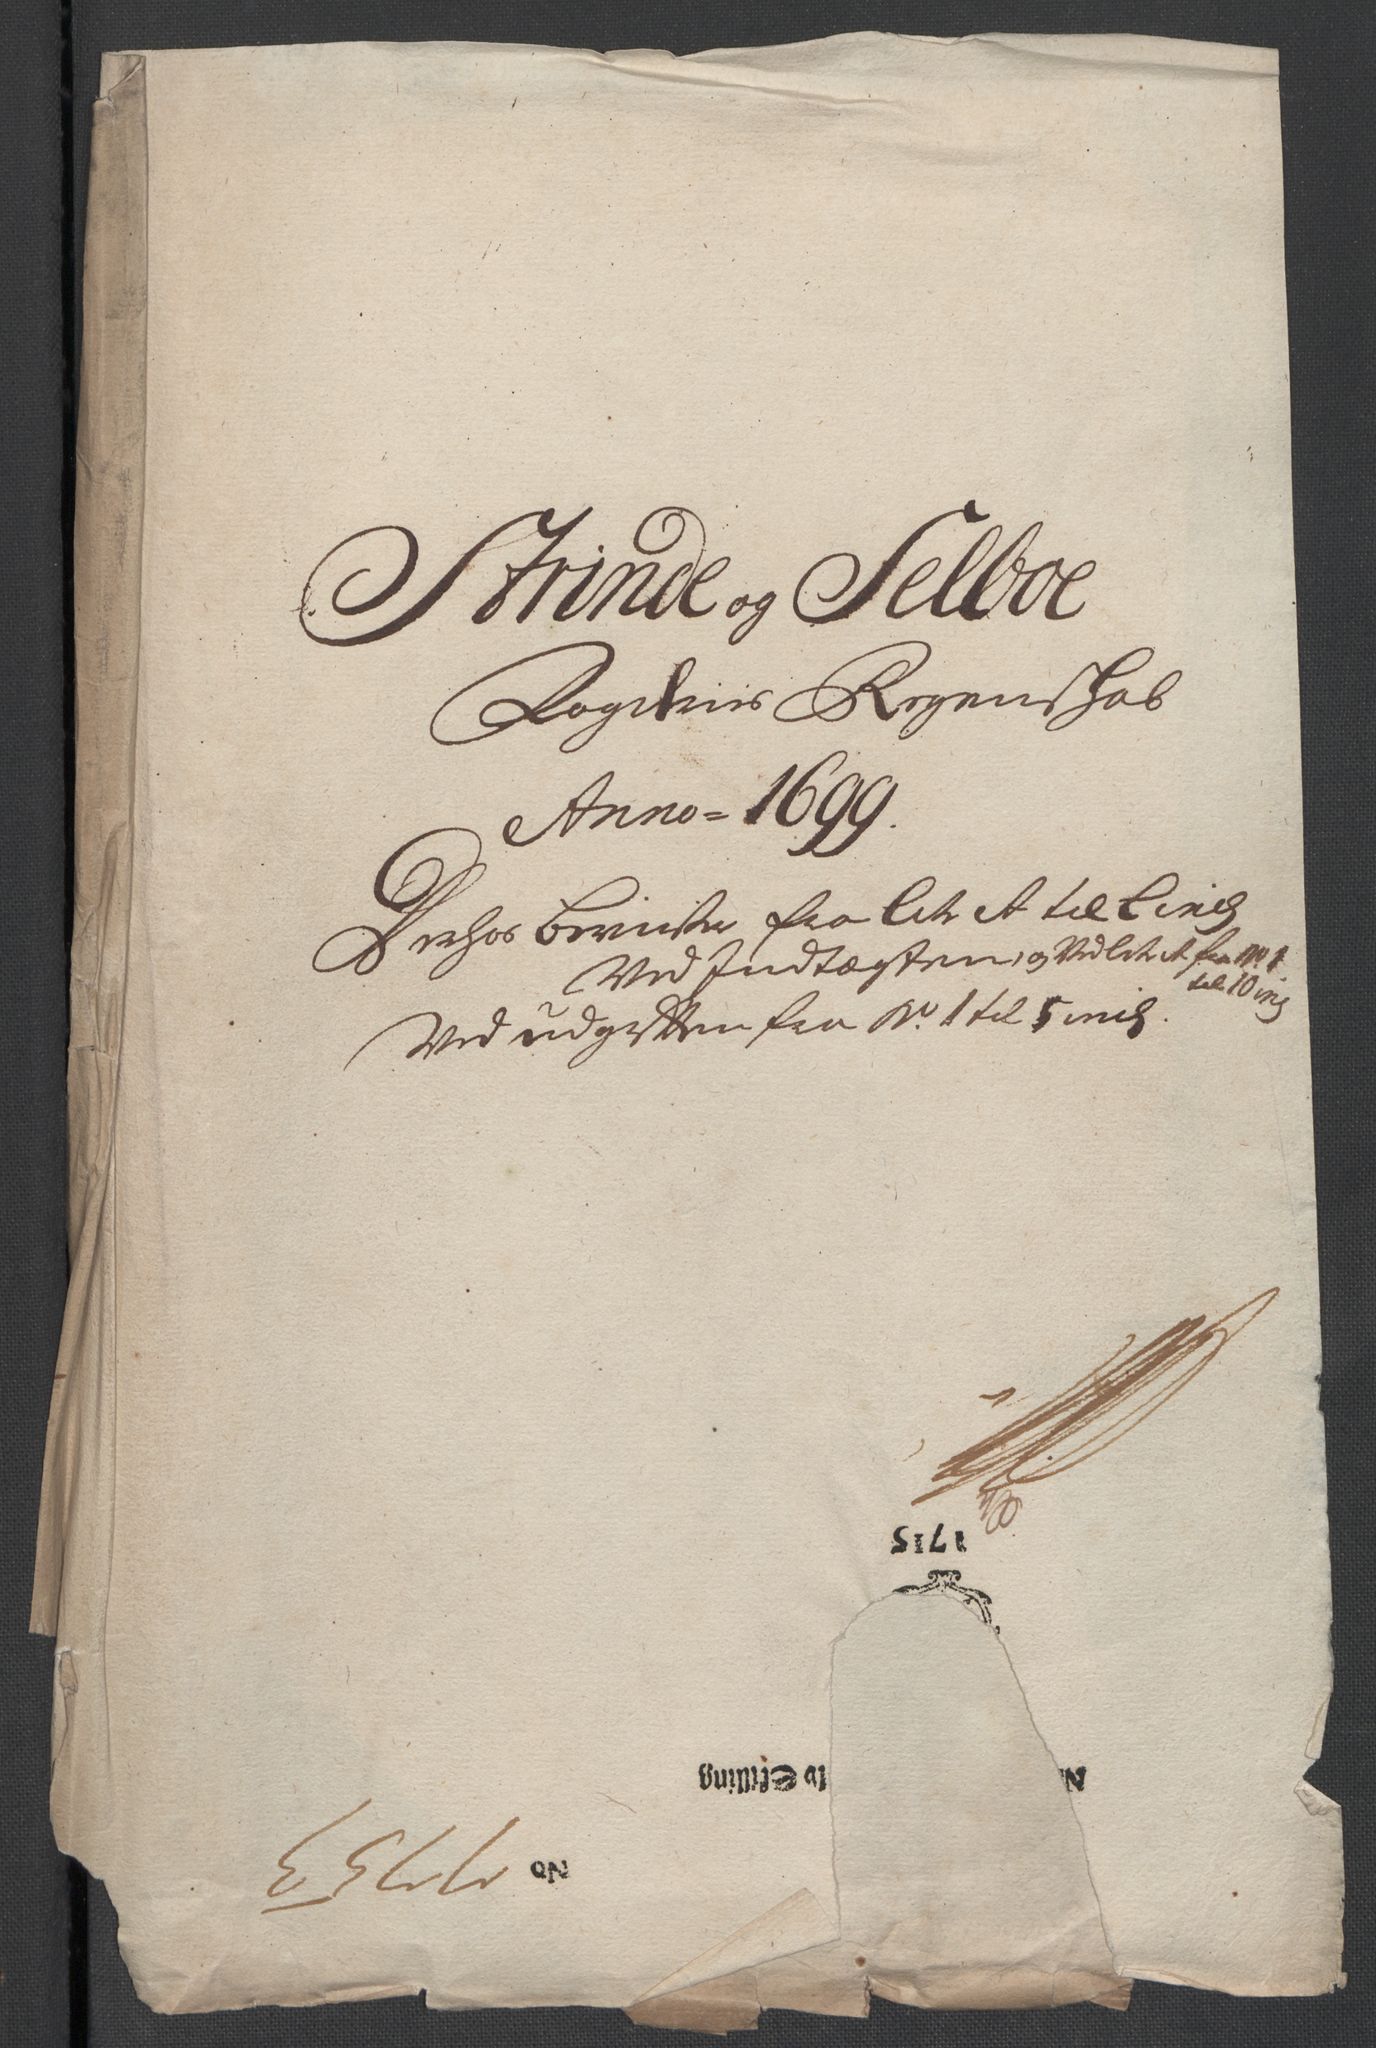 Strinde og Selboe
Fogderis Regenskab
Anno = 1699.
Derhos beviiser fra Litr A til C incl
Ved Indtægten, og Ved Litr A fra No 1
til 10 incl
Ved udgiften fra No 1 til 5 incl.
1715
Skilling
No